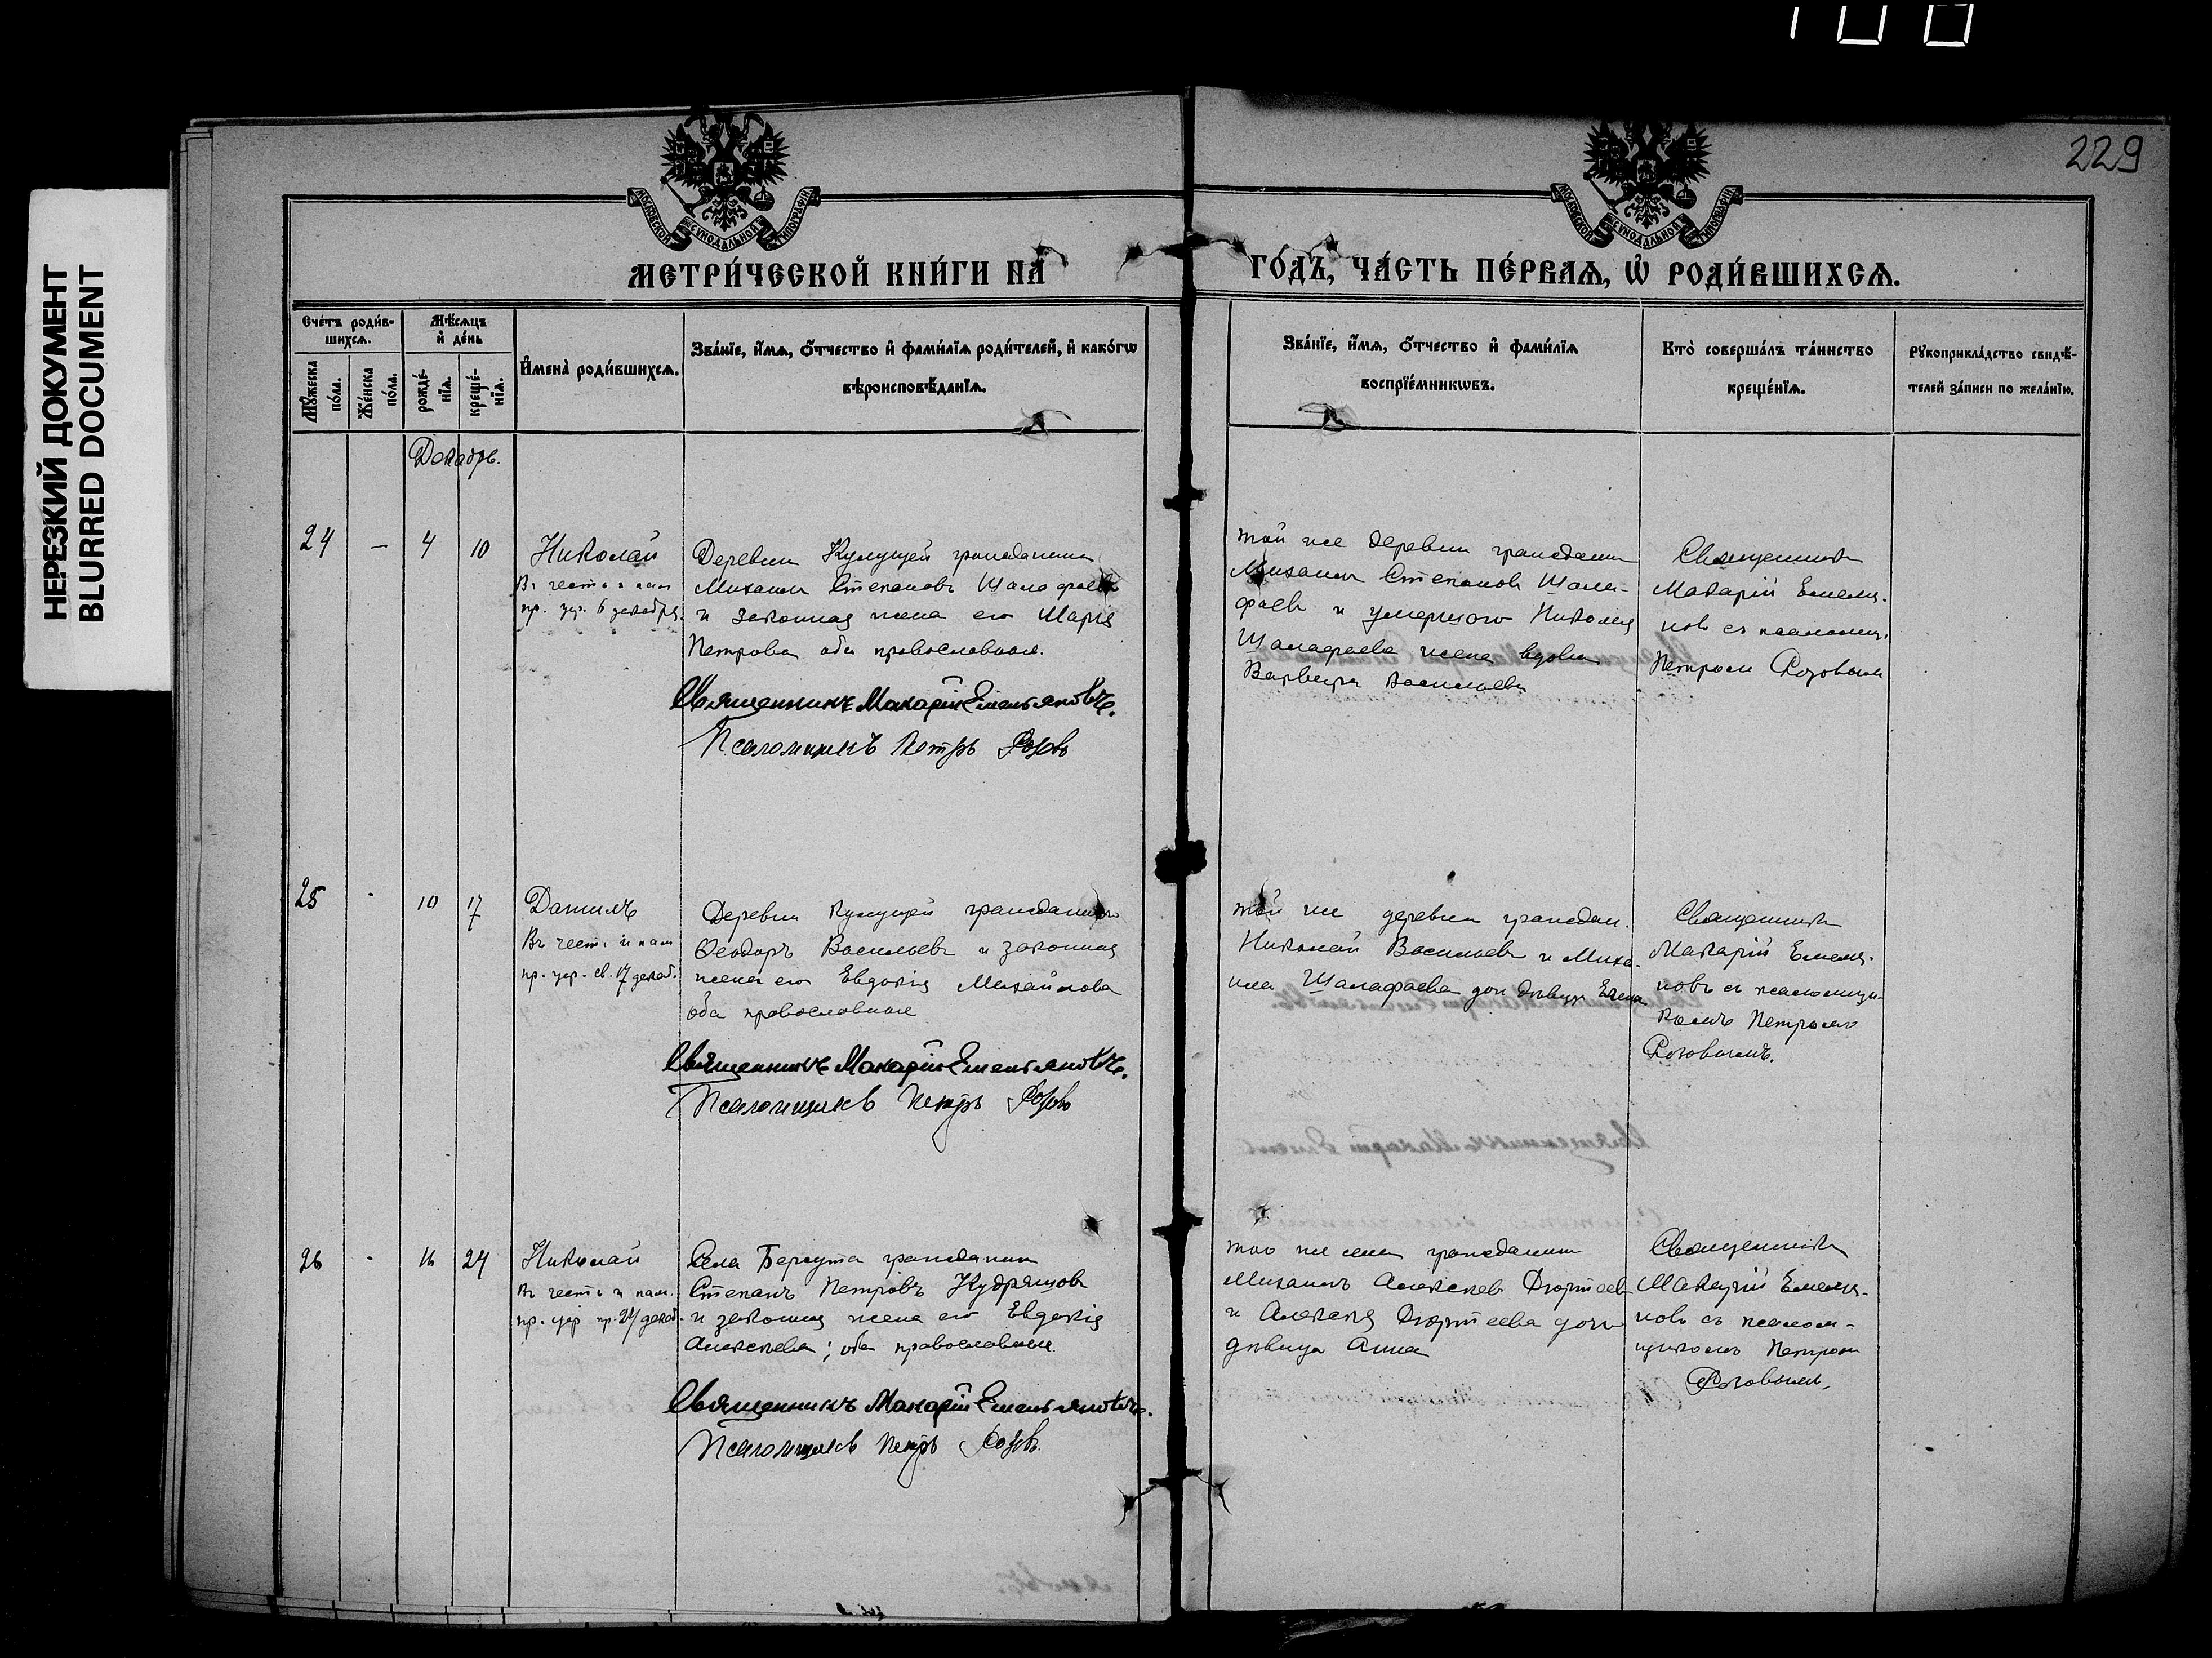 229
НЕРЕЗКИЙ ДОКУМЕНТ
BLURRED DOCUMENT
МОСКОВСКОЙ СѴНОДАЛЬНОЙ ТИПОГРАФІИ
МОСКОВСКОЙ СѴНОДАЛЬНОЙ ТИПОГРАФІИ
МЕТРИ́ЧЕСКОЙ КНИ́ГИ НА̀
ГО́ДЪ, ЧА́СТЬ ПЕ́РВАѦ, Ѽ РОДИ́ВШИХСѦ.
Сче́тъ роди́в-
шихсѧ.
Мѣ́сѧцъ
и҆ де́нь
Мꙋ́жеска
по́ла.
Же́нска
по́ла.
рожде́-
нїѧ.
креще́-
нїѧ.
И҆мена̀ роди́вшихсѧ.
Зва́нїе, и҆́мѧ, ѻ҆́тчество и҆ фами́лїѧ роди́телей, и҆ како́гѡ
вѣроисповѣ́данїѧ.
Зва́нїе, и҆́мѧ, ѻ҆́тчество и҆ фами́лїѧ
воспрїе́мникѡвъ.
Кто̀ соверша́лъ та́инство
креще́нїѧ.
Рꙋкоприкла́дство свидѣ́-
телей за́писи по жела́нїю.
Декабрь.
24 – 4 10
Николай
Въ честь и пам
пр. чуд. 6 декабря.
Деревни гражданинъ
Михаилъ Степановъ Шалафаевъ
и законная жена его Марія
Петрова оба православные.
Священникъ Макарій Емельяновъ.
Псаломщикъ Петръ Розовъ
той же деревни гражданин
Михаил Степанов Шала-
фаев и умершого Николая
Шалафаева жена вдова
Варвара Васильева
Священник
Макарій Емелья-
нов съ псаломщ.
Петром Розовым
25 - 10 17
Данилъ
Въ честь и пам
пр. св. 17 декаб.
Деревни гражданинъ
Ѳеодоръ Васильевъ и законная
жена его Евдокія Михайлова
оба православные
Священникъ Макарій Емельяновъ.
Псаломщикъ Петръ Розовъ
той же деревни граждан.
Николай Васильевъ и Миха-
ила Шалафаева доч дѣвица Елена
Священник
Макарій Емелья-
новъ съ псаломщи-
комъ Петромъ
Розовымъ.
26 - 16 24
Николай
Въ честь и пам.
пр. 24 декаб.
Села Берсута гражданин
Степанъ Петровъ Кудряшов
и законная жена его Евдокія
Алексѣева; оба православные.
Священникъ Макарій Емельяновъ.
Псаломщикъ Петръ Розовъ.
того же села гражданин
Михаилъ Алексѣев Дюртеев
и Алексѣя Дюртеева дочь
дѣвица Анна
Священник
Макарій Емелья-
новъ съ псалом-
щикомъ Петром
Розовым.